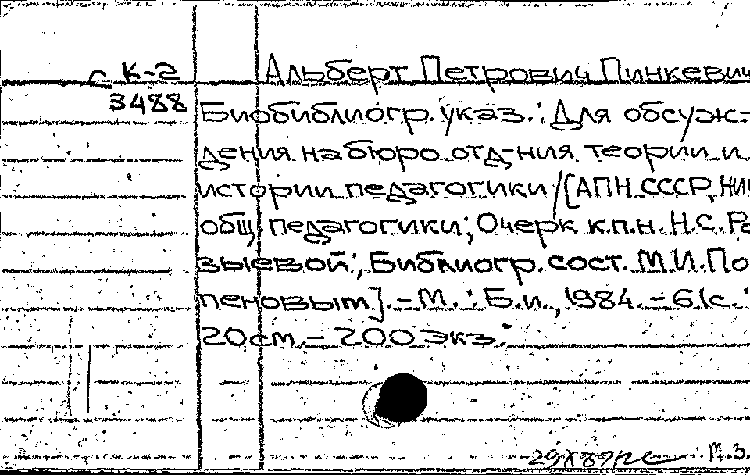 с К-2
3488
Альберт Петрович Пинкевич
Биобиблиогр. указ.: Для обсуж-
дения на бюро отд-ния теории и
истории педагогики / [АПН СССР, НИИ
общ. педагогики; Очерк к.п.н. Н.С. Ра
выевой; Библиогр. сост. М.И. По
пеновым]. - М.: Б.и., 1984. - 61 с.;
20 см. - 200 экз.
М.З.